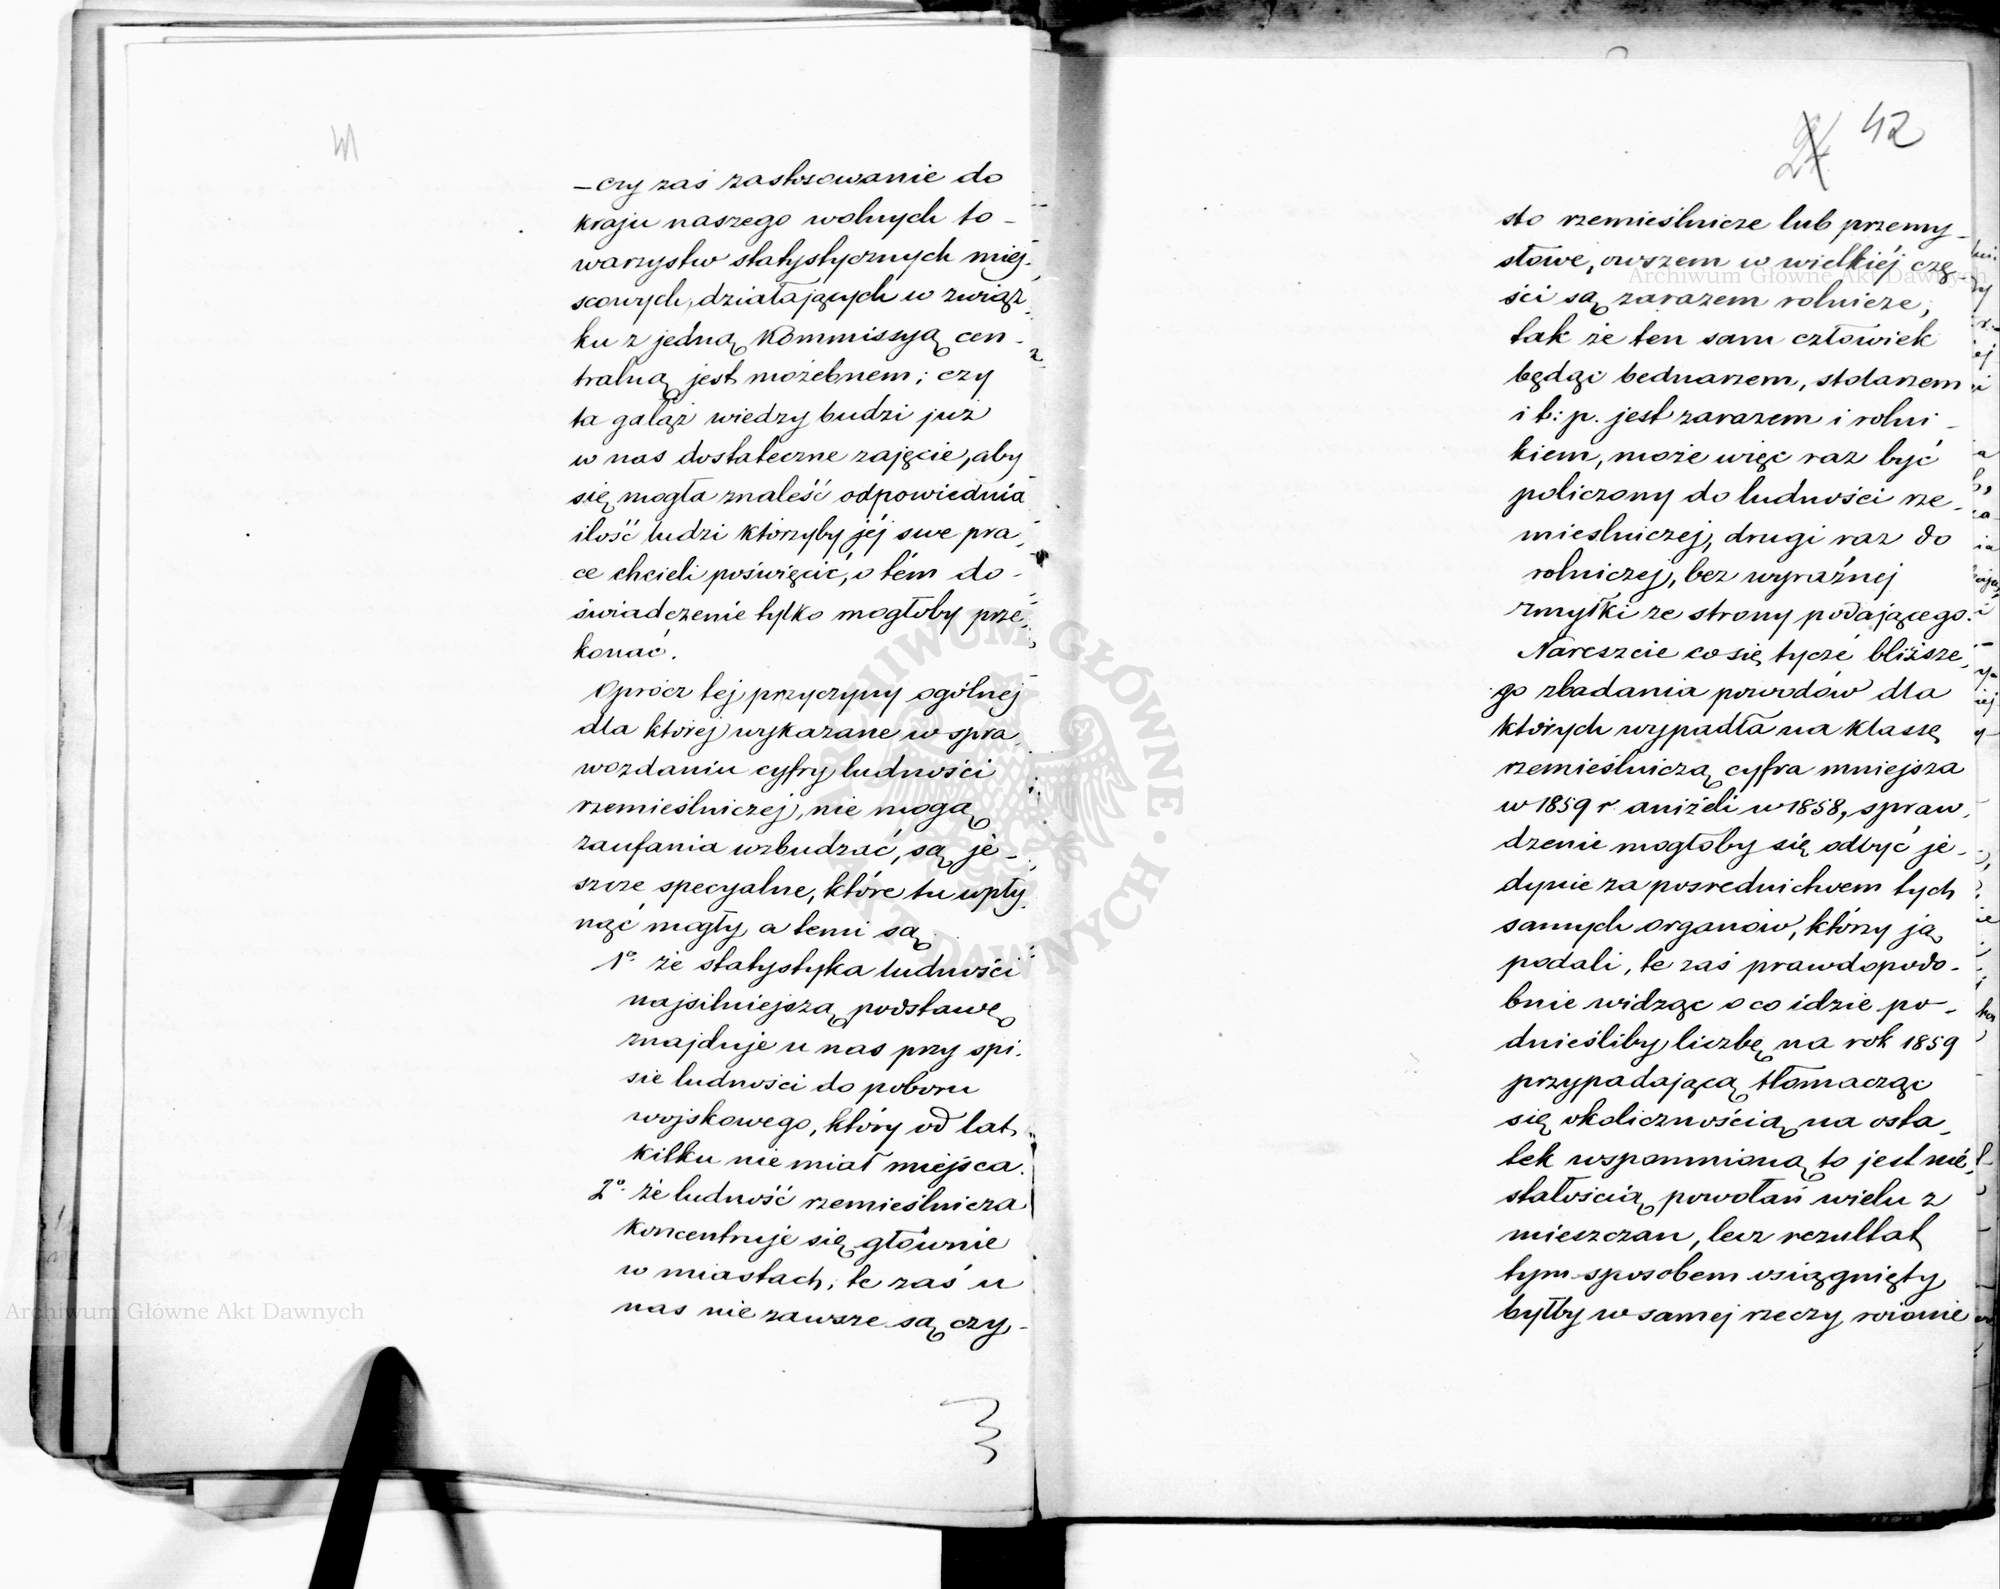 – czy zaś zastosowanie do
kraju naszego wolnych to-
warzystw statystycznych miej-
scowych, działających w związ-
ku z jedną Kommissyą cen-
tralną jest możebnem; czy
ta gałąź wiedzy budzi już
w nas dostateczne zajęcie, aby
się mogła znaleść odpowiednia
ilość ludzi którzyby jéj swe pra-
ce chcieli poświęcić, o tém do-
świadczenie tylko mogłoby prze-
konać.
Oprócz tej przyczyny ogólnej
dla której wykazane w spra-
wozdaniu cyfry ludności
rzemieślniczej, nie mogą
zaufania wzbudzać, są je-
szcze specyalne, które tu wpły-
nąć mogły, a temi są
1º że statystyka ludności
najsilniejszą podstawę
znajduje u nas przy spi-
sie ludności do poboru
wojskowego, który od lat
kilku nie miał miejsca.
2º że ludność rzemieślnicza
koncentruje się głównie
w miastach, te zaś u
nas nie zawsze są czy-
42
sto rzemieślnicze lub przemy-
słowe, owszem w wielkiéj czę-
ści są zarazem rolnicze,
tak że ten sam człowiek
będąc bednarzem, stolarzem
i t: p. jest zarazem i rolni-
kiem, może więc raz być
policzony do ludności rze-
mieslniczej, drugi raz do
rolniczej, bez wyraźnej
zmyłki ze strony podającego.
Nareszcie co się tycze bliższe-
go zbadania powodów dla
których wypadła na klassę
rzemieślniczą cyfra mniejsza
w 1859 r aniżeli w 1858, spraw-
dzenie mogłoby się odbyć je-
dynie za posrednictwem tych
samych organów, który ją
podali, te zaś prawdopodo-
bnie widząc o co idzie po-
dnieśliby liczbę na rok 1859
przypadającą tłomacząc
się okolicznością na osta-
tek wspomnioną to jest nie-
stałością powołań wielu z
mieszczan, lecz rezultat
tym sposobem osiągnięty
byłby w samej rzeczy równie
Archiwum Główne Akt Dawnych
Archiwum Główne Akt Dawnych
ARCHIWUM GŁÓWNE AKT DAWNYCH